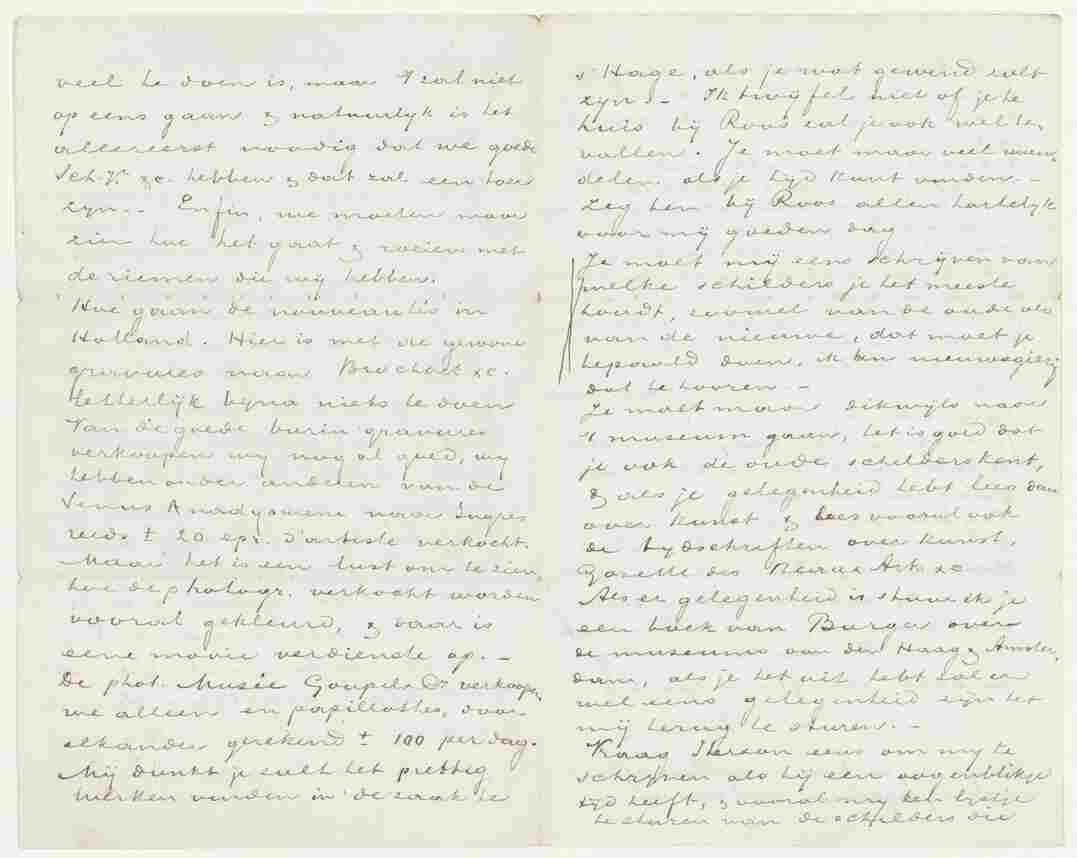 veel te doen is, maar 't zal niet
op eens gaan & natuurlijk is het
allereerst noodig dat we goede
Sch.ij. &c. hebben & dat zal een toer
zijn. - Enfin, we moeten maar
zien hoe het gaat & roeien met
de riemen die wij hebben.
Hoe gaan de nouveautés in
Holland. Hier is met de gewone
gravures naar Brochart &c.
letterlijk bijna niets te doen
Van de goede burin gravures
verkoopen wij nog al goed, wij
hebben onder anderen van de
Venus Anadyomene naar Ingres
reeds ± 20 epr. d'artiste verkocht.
Maar het is een lust om te zien,
hoe de photogr. verkocht worden
vooral gekleurd, & daar is
eene mooie verdienste op. -
De phot. Musée Goupil & Co verkoopen
we alleen en papillottes, door
elkander gerekend ± 100 per dag.
Mij dunkt je zult het prettig
werken vinden in de zaak te
s' Hage, als je wat gewend zult
zijn. - Ik twijfel niet of je te
huis bij Roos zal je ook wel be-
vallen. Je moet maar veel wan-
delen als je tijd kunt vinden. -
Zeg hen bij Roos allen hartelijk
voor mij goeden dag
Je moet mij eens schrijven van
welke schilders je het meeste
houdt, zoowel van de oude als
van de nieuwe, dat moet je
bepaald doen, ik ben nieuwsgierig
dat te hooren -
Je moet maar dikwijls naar
't museum gaan, het is goed dat
je ook de oude schilders kent,
& als je gelegenheid hebt lees dan
over kunst & lees vooral ook
de tijdschriften over kunst,
Gazette des Beaux Arts &c
Als er gelegenheid is stuur ik je
een boek van Burger over
de museums van den Haag & Amster-
dam, als je het uit hebt zal er
wel eens gelegenheid zijn het
mij terug te sturen. -
Vraag Iterson eens om mij te
schrijven als hij een oogenblikje
tijd heeft, & vooral mij een lijstje
te sturen van de schilders die